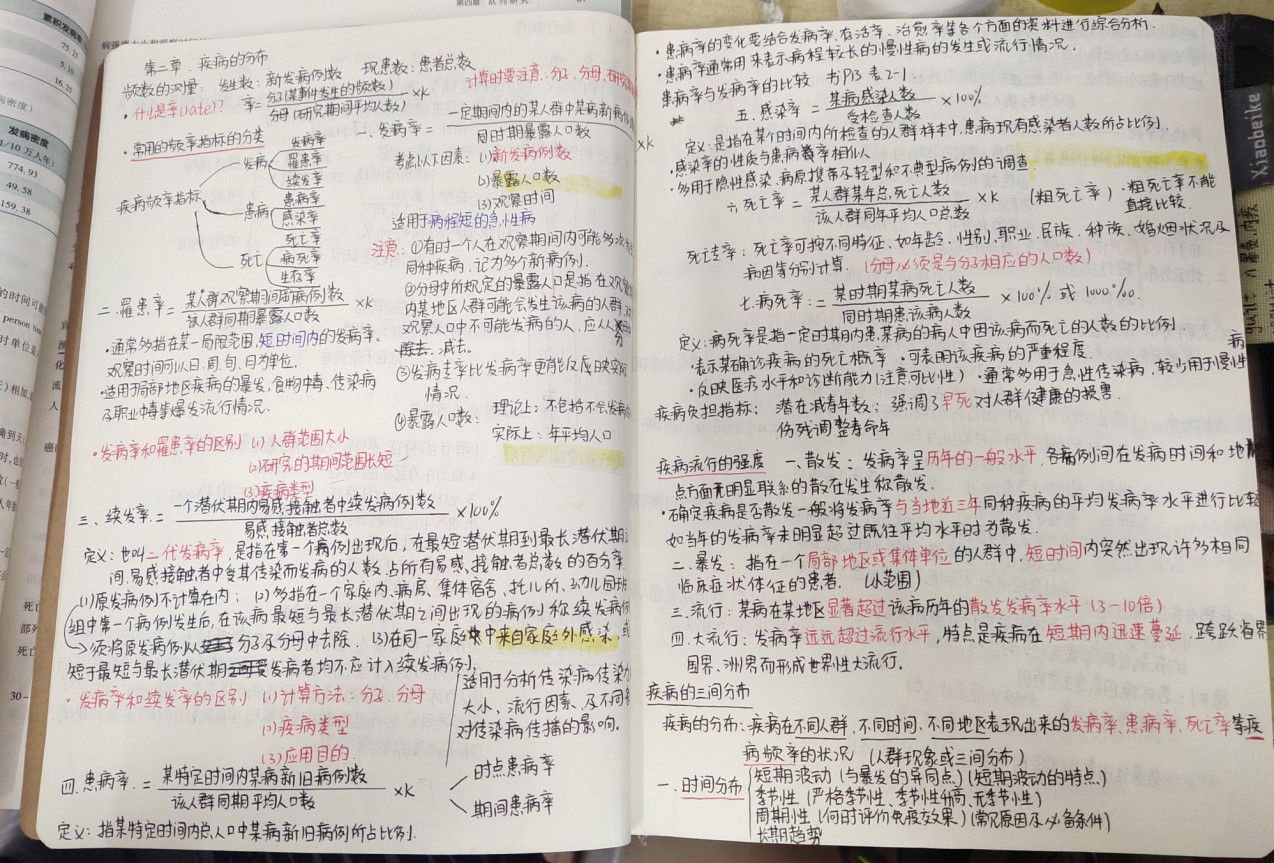 第二章、疾病的分布
频数的测量: 发生数: 新发病例数 现患数: 患者总数
·什么是率(rate)? 率=分子(某事件发生的频数)/分母(研究期间平均人数) ×k 计算时要注意: 分子、分母、研究
·常用的频率指标的分类
疾病频率指标
发病
发病率
罹患率
续发率
患病
患病率
感染率
死亡
死亡率
病死率
生存率
一、发病率=一定期间内的某人群中某病新病例/同时期暴露人口数 ×k
考点以下因素: (1)新发病例数
(2)暴露人口数
(3)观察时间
适用于病程短的急性病
注意: ①有时一个人在观察期间内可能多次
同种疾病, 记为多个新病例.
②分母中所规定的暴露人口是指在观察
内某地区人群可能会发生该病的人群,
观察人口中不可能发病的人, 应从分
减去.
③发病专率比发病率更能反应映实际
情况.
④暴露人口数: 理论上: 不包括不会发病
实际上: 年平均人口
二、罹患率=某人群观察期间新病例数/该人群同期暴露人口数 ×k
·通常多指在某一局限范围, 短时间内的发病率.
观察时间可以日、周、旬、月为单位.
·适用于局部地区疾病的暴发, 食物中毒、传染病
及职业中毒等爆发流行情况.
·发病率和罹患率的区别 (1)人群范围大小
(2)研究的期间范围长短
(3)疾病类型
三、续发率=一个潜伏期内易感接触者中续发病例数/易感接触者总数 ×100%
定义: 也叫二代发病率, 是指在第一个病例出现后, 在最短潜伏期到最长潜伏期
间, 易感接触者中受其传染而发病的人数占所有易感、接触者总数的百分率.
(1)原发病例不计算在内; (2)多指在一个家庭内、病房、集体宿舍、托儿所、幼儿园班
组中第一个病例发生后, 在该病最短与最长潜伏期之间出现的病例称续发病例
→须将原发病例从分子及分母中去除. (3)在同一家庭中来自家庭外感染, 或
短于最短与最长潜伏期发病者均不应计入续发病例.
·发病率和续发率的区别 (1)计算方法: 分子、分母
(2)疾病类型
(3)应用目的
适用于分析传染病传染力
大小、流行因素、及不同
对传染病传播的影响.
四、患病率=某特定时间内某病新旧病例数/该人群同期平均人口数 ×k
时点患病率
期间患病率
定义: 指某特定时间内总人口中某病新旧病例所占比例.
·患病率的变化要结合发病率、存活率、治愈率等各个方面的资料进行综合分析.
·患病率通常用来表示病程较长的慢性病的发生或流行情况.
患病率与发病率的比较 书P13 表2-1
五、感染率=某病感染人数/受检人数 ×100%
定义: 是指在某个时间内所检查的人群样本中, 患病现有感染者人数所占比例.
·感染率的性质与患病率相似
·多用于隐性感染、病原携带及轻型和不典型病例的调查
六、死亡率=某人群某年总死亡人数/该人群同年平均人口总数 ×k (粗死亡率) ·粗死亡率不能
直接比较.
死亡专率: 死亡率可按不同特征、如年龄、性别、职业、民族、种族、婚姻状况及
病因等分别计算 (分母必须是与分子相应的人口数)
七、病死率:=某时期某病死亡人数/同时期患该病人数 ×100% 或 1000‰.
定义: 病死率是指一定时期内患某病的病人中因该病而死亡的人数的比例.
·表示某确诊疾病的死亡概率 ·可表明该疾病的严重程度.
·反映医疗水平和诊断能力(注意可比性) ·通常多用于急性传染病, 较少用于慢性病
疾病负担指标: 潜在减寿年数; 强调了早死对人群健康的损害.
伤残调整寿命年
疾病流行的强度 一、散发: 发病率呈历年的一般水平, 各病例间在发病时间和地
点方面无明显联系的散在发生称散发.
·确定疾病是否散发一般将发病率与当地近三年同种疾病的平均发病率水平进行比较
如当年的发病率未明显超过既往平均水平时为散发.
二、暴发: 指在一个局部地区或集体单位的人群中, 短时间内突然出现许多相同
临床症状体征的患者. (小范围)
三、流行: 某病在某地区显著超过该病历年的散发发病率水平 (3-10倍)
四、大流行: 发病率远远超过流行水平, 特点是疾病在短期内迅速蔓延, 跨跃省界
国界、洲界而形成世界性大流行.
疾病的三间分布
疾病的分布: 疾病在不同人群, 不同时间, 不同地区表现出来的发病率、患病率、死亡率等疾
病频率的状况 (人群现象或三间分布)
一、时间分布
短期波动 (与暴发的异同点) (短期波动的特点)
季节性 (严格季节性、季节性升高、无季节性)
周期性 (何时评价免疫效果) (常见原因及必备条件)
长期趋势
累积发病率
75.25
5.16
16.25
发病密度
(1/10万人年)
774.93
49.58
159.38
第四章 队列研究
Xiaobeike